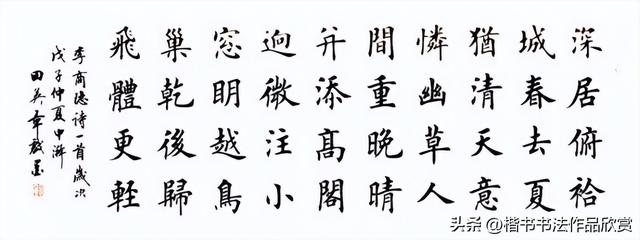 深居俯袷
城春去夏
猶清天意
憐幽草人
間重晚晴
并添髙閣
逈微注小
窓明越鳥
巢乾後歸
飛體更輕
李商隱詩一首歲次
戊子仲夏中澣
田英章敬
头条 @楷书书法作品欣赏